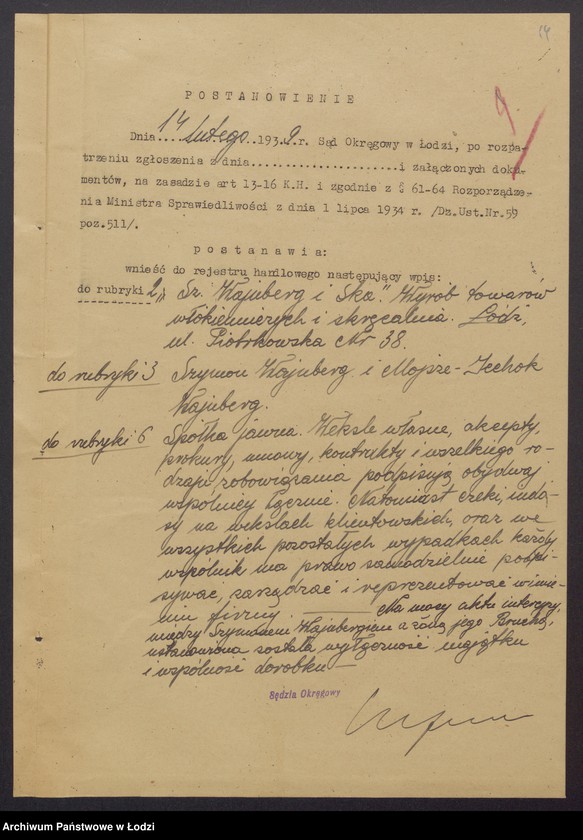 14
9
POSTANOWIENIE
Dnia...14 lutego..1939.r. Sąd Okręgowy w Łodzi, po rozpa-
trzeniu zgłoszenia z dnia.....................i załączonych doku-
mentów, na zasadzie art 13-16 K.H. i zgodnie z § 61-64 Rozporządze-
nia Ministra Sprawiedliwości z dnia 1 lipca 1934 r. /Dz.Ust.Nr.59
poz.511/.
postanawia:
wnieść do rejestru handlowego następujący wpis:
do rubryki 2, „Sz. Wajnberg i Ska". Wyrób towarów
włókienniczych i skręcalnia. Łódź,
ul. Piotrkowska Nr 38.
do rubryki 3 Szymon Wajnberg i Mojsze-Icchok
Wajnberg.
do rubryki 6 Spółka jawna. Weksle własne, akcepty,
prokury, umowy, kontrakty i wszelkiego ro-
dzaju zobowiązania podpisują obydwaj
wspólnicy łącznie. Natomiast czeki, indo-
sy na wekslach klientowskich, oraz we
wszystkich pozostałych wypadkach każdy
wspólnik ma prawo samodzielnie podpi-
sywać, zarządzać i reprezentować w imie-
niu firmy. Na mocy aktu intercyzy,
między Szymonem Wajnbergiem a żoną jego Bruchą,
ustanowiona została wyłączność majątku
i wspólność dorobku —
Sędzia Okręgowy
Archiwum Państwowe w Łodzi